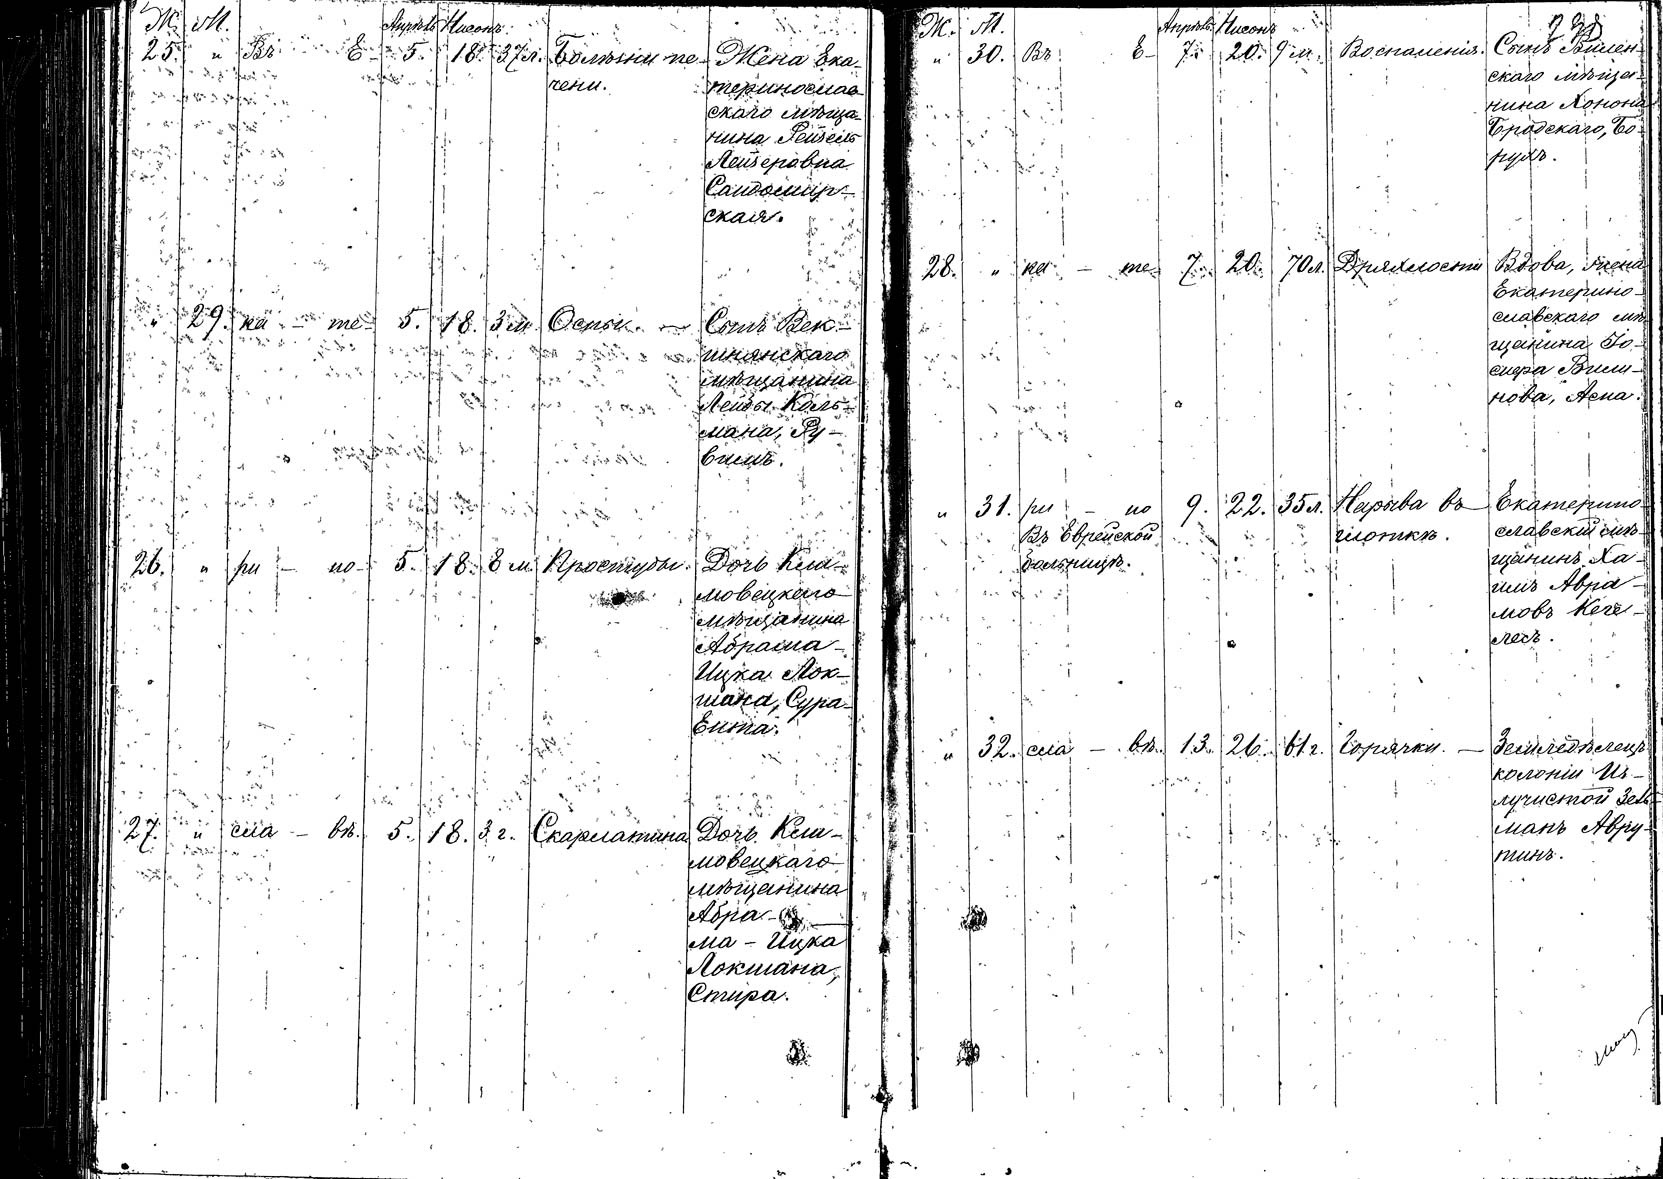 Ж. М. Апрѣль Нисонъ
25. " Въ Е- 5. 18. 37л. Болѣзни пе- Жена Ека-
чени. теринослав-
скаго мѣща-
нина Рейзель
Лейзеровна
Сандомир-
ская.
" 29. ка - те- 5. 18. 3 м. Оспы. - Сынъ Век-
шнянскаго
мѣщанина
Лейбы Коль-
мана, Ру-
вимъ.
26. " ри - но- 5. 18. 8 м. Простуды. Дочь Кли-
мовецкаго
мѣщанина
Абрама-
Ицка Лок-
шана, Сура-
Ента.
27. " сла - вѣ. 5. 18. 3 г. Скарлатина Дочь Кли-
мовецкаго
мѣщанина
Абра-
ма - Ицка
Локшана,
Стира.
Ж. М. Апрѣль Нисонъ
" 30. Въ Е- 7. 20. 9 м. Воспаленія. Сынъ Вилен-
скаго мѣща-
нина Хонона
Бродскаго, Бо-
рухъ.
28. " ка - те- 7. 20. 70л. Дряхлости Вдова, жена
Екатерино-
славскаго мѣ-
щанина Іо-
сифа Вили-
нова, Асна.
" 31. ри - но 9. 22. 35л. Нарыва въ Екатерино-
Въ Еврейской глоткѣ. славскій мѣ-
больницѣ. щанинъ Ха-
имъ Авра-
мовъ Кеге-
лесъ.
" 32. сла - вѣ. 13. 26. 61 г. Горячки. - Земледѣлецъ
колоніи Из-
лучистой Зель-
манъ Авру-
тинъ.